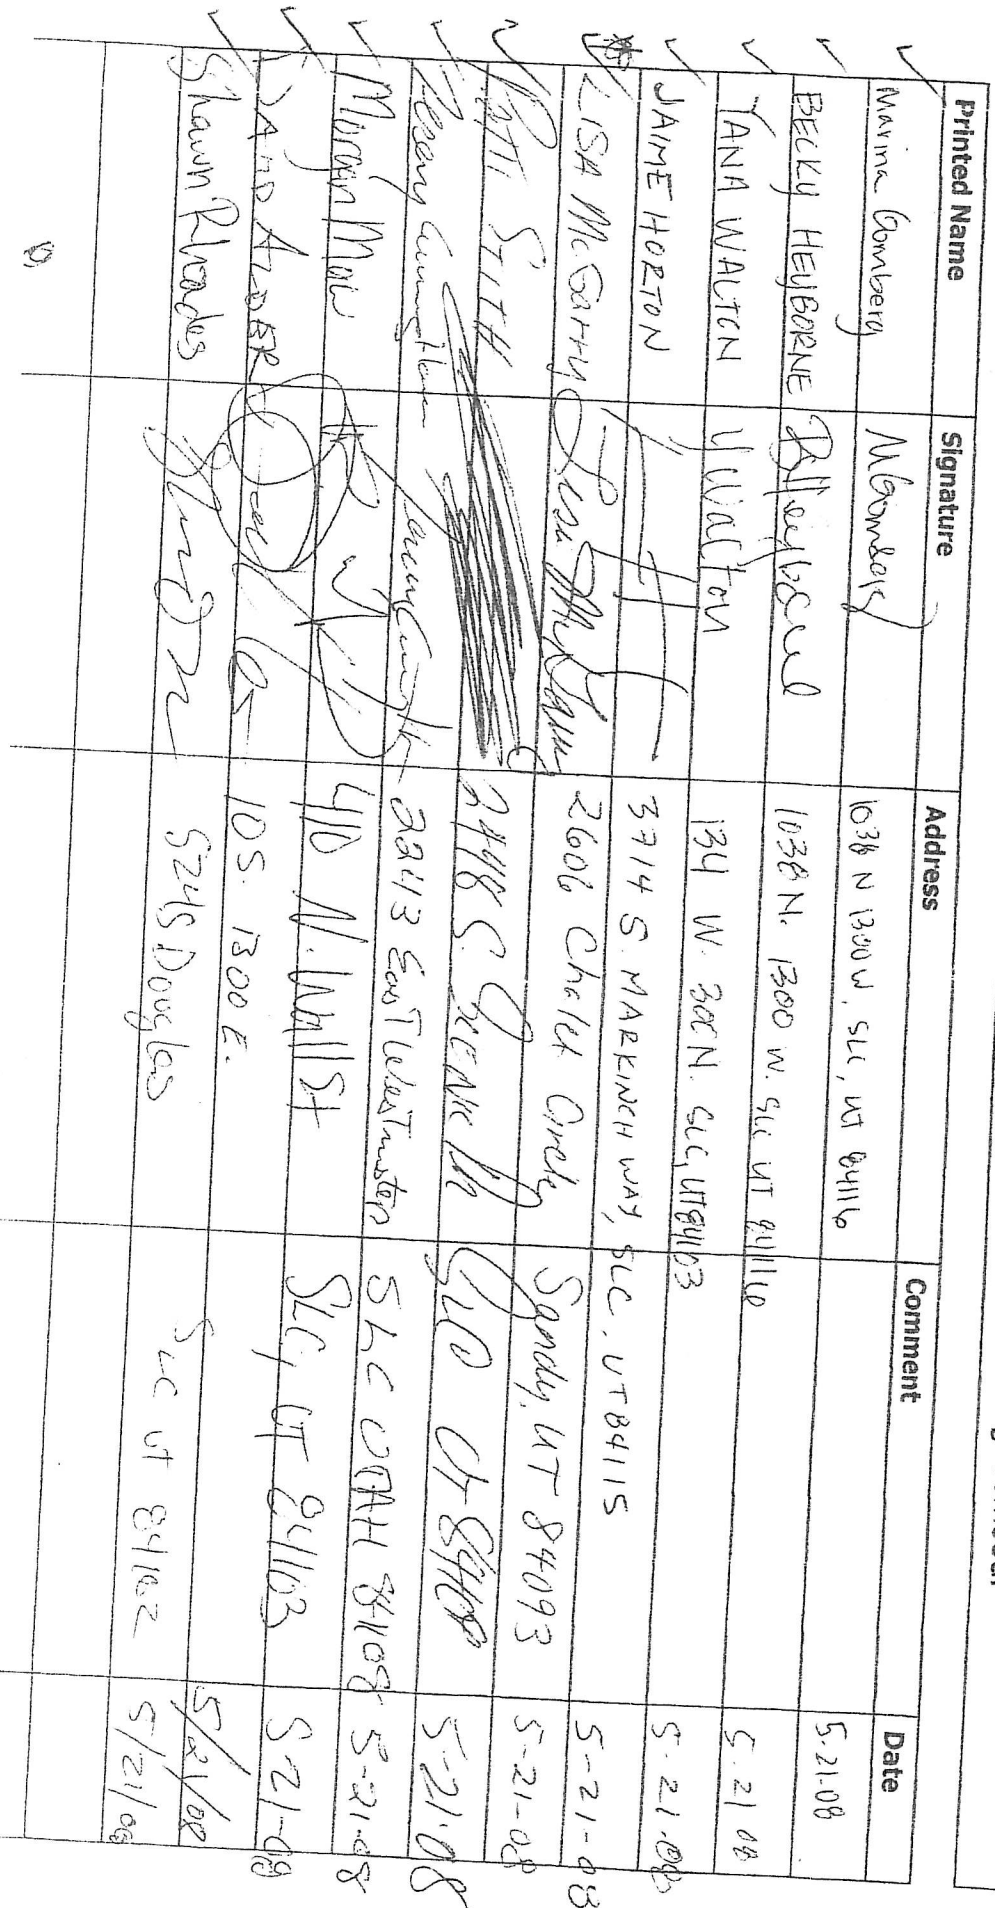 Printed Name Signature Address Comment Date
Marina Gomberg MGomberg 1038 N 1300 W, SLC, UT 84116 5-21-08
BECKY HEYBORNE BHeyborne 1038 N. 1300 W. SLC UT 84116 5.21 08
YANA WALTON YWalton 134 W. 300 N. SLC, UT 84103 5.21.08
JAIME HORTON 3714 S. MARKINCH WAY, SLC, UT 84115 5-21-08
LISA McGarry 2606 Chalet Circle Sandy, UT 84093 5-21-08
PATTI STITH 2448 S. SLC Ut 84108 5-21-08
Cunningham 2243 EasT WesTminster SLC UTAH 84108 5-21-08
Morgan 410 N. Wall St SLC, UT 84103 5-21-08
DAVID ALDER 10 S. 1300 E. 5/21/08
Shawn Rhoades 524 S Douglas SLC UT 84102 5/21/08